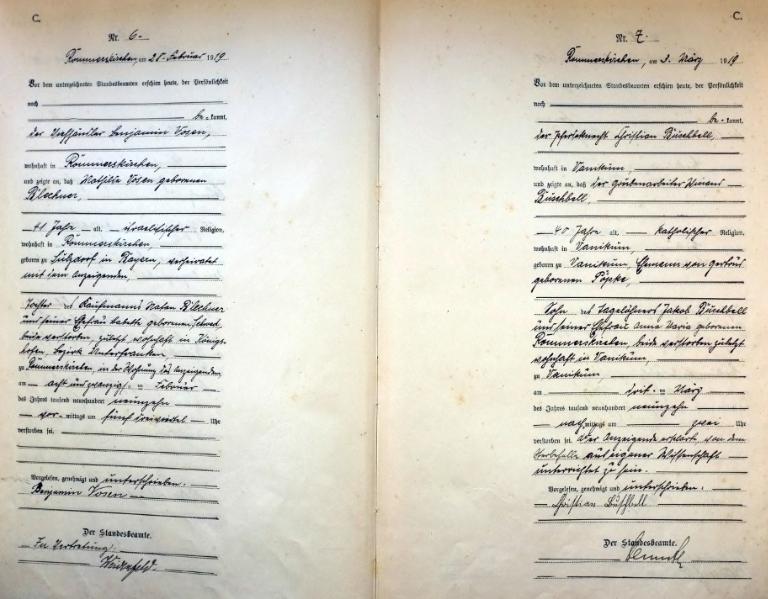 C.
Nr. 6.
Rommerskirchen, am 28. Februar 1919
Vor dem unterzeichneten Standesbeamten erschien heute, der Persönlichkeit
nach
be-kannt,
der Viehhändler Benjamin Vosen,
wohnhaft in Rommerskirchen,
und zeigte an, daß Mathilde Vosen geborenen
Blechner,
41 Jahre alt, israelitischer Religion,
wohnhaft in Rommerskirchen,
geboren zu Sulzdorf in Bayern, verheiratet
mit dem Anzeigenden,
Tochter des Kaufmanns Natan Blechner
und seiner Ehefrau Babette geborenen
beide verstorben, zuletzt wohnhaft in Königs-
hofen, Bezirk Unterfranken
zu Rommerskirchen, in der Wohnung des Anzeigenden
am acht und zwanzigsten Februar
des Jahres tausend neunhundert neunzehn
vor-mittags um fünf dreiviertel Uhr
verstorben sei.
Vorgelesen, genehmigt und unterschrieben.
Benjamin Vosen
Der Standesbeamte.
In Vertretung:
C.
Nr. 7.
Rommerskirchen, am 3. März 1919
Vor dem unterzeichneten Standesbeamten erschien heute, der Persönlichkeit
nach
be-kannt,
der Pferdeknecht Christian Buschbell,
wohnhaft in Vanikum,
und zeigte an, daß der Grubenarbeiter Winand
Buschbell,
40 Jahre alt, katholischer Religion,
wohnhaft in Vanikum,
geboren zu Vanikum, Ehemann von Gertrud
geborenen Pöpke,
Sohn des Tagelöhners Jakob Buschbell
und seiner Ehefrau Anna Maria geborenen
Rommerskirchen, beide verstorben zuletzt
wohnhaft in Vanikum,
zu Vanikum
am dritten März
des Jahres tausend neunhundert neunzehn
nachmittags um zwei Uhr
verstorben sei. Der Anzeigende erklärt, von dem
Sterbefalle aus eigener Wissenschaft
unterrichtet zu sein.
Vorgelesen, genehmigt und unterschrieben.
Christian Buschbell
Der Standesbeamte.